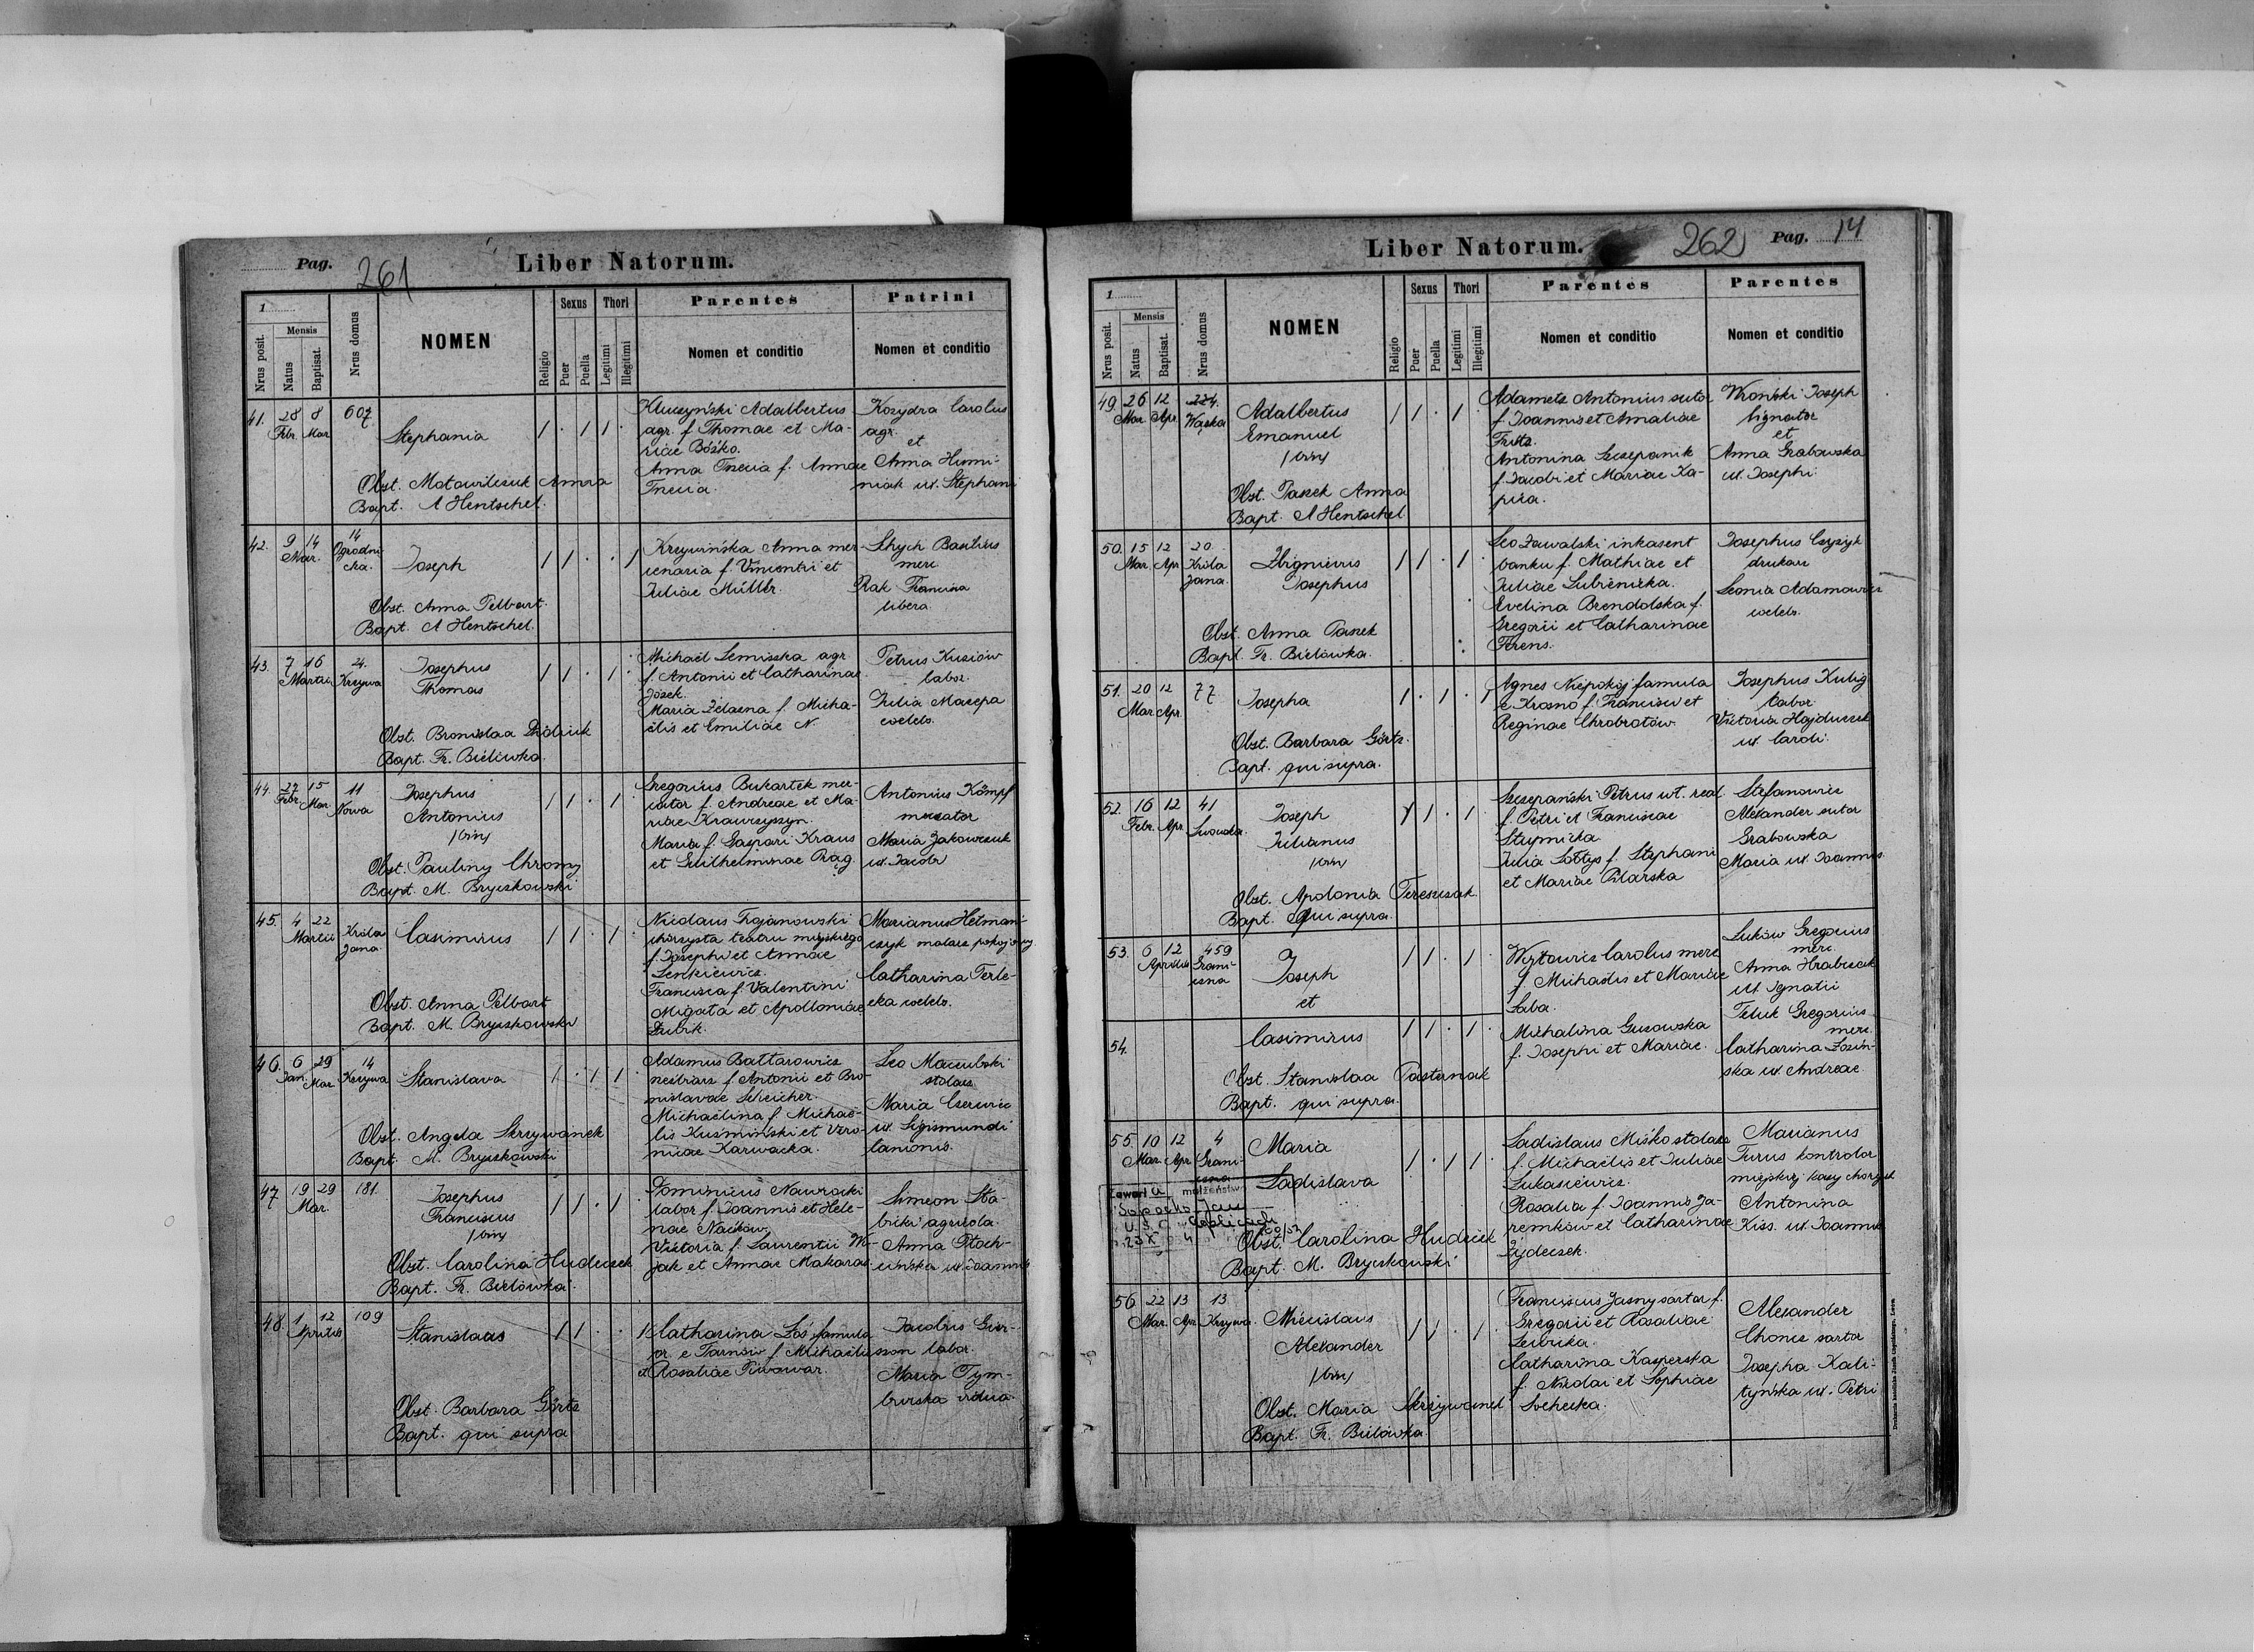 Pag. 261
Liber Natorum.
1
Nrus posit.
Mensis
Natus
Baptisat.
Nrus domus
NOMEN
Religio
Sexus
Puer
Puella
Thori
Legitimi
Illegitimi
Parentes
Nomen et conditio
Patrini
Nomen et conditio
41. 28 Febr. 8 Mar 607
Stephania
Obst. Motowilczuk Anna
Bapt. A Hentschel.
Kluczyński Adalbertus
agr. f. Thomae et Ma-
riae Bośko.
Anna Tnecia f. Annae
Tnecia.
Kozydra Carolus
agr.
et
Anna Humi-
niak ux. Stephani
42. 9 14 Mar. 14 Ogrodni-
cka.
Joseph
Obst. Anna Pelbart.
Bapt. A Hentschel.
Krzywińska Anna mer-
cenaria f. Vincentii et
Juliae Müller.
Lhych Basilius
merc
Rak Francisca
libera.
43. 7 16 Martii 24. Krzywa
Josephus
Thomas
Obst. Bronislaa
Bapt. Fr. Bielówka.
Michaël Lemiszka agr
f. Antonii et Catharinae
Józek.
Maria Żelazna f. Micha-
ëlis et Emiliae N.
Petrus Kuziów
labor.
Julia Mazepa
coeleb.
44. 27 Febr. 15 Mar 11 Nowa
Josephus
Antonius
/bin/
Obst. Pauliny Chromy
Bapt. M. Bryczkowski
Gregorius Bukartek mer-
cator f. Andreae et Ma-
riae Krawczyszyn.
Maria f. Gaspari Kraus
et Guilhelminae Rag.
Antonius Kömpf
mercator
Maria Jakowczuk
ux. Jacobi
45. 4 22 Martii Króla
Jana.
Casimirus
Obst. Anna Pelbart
Bapt. M. Bryczkowski
Nicolaus Trojanowski
chórzysta teatru miejskiego
f. Josephi et Annae
Senkiewicz.
Francisca f. Valentini
Migata et Apolloniae
Zubik.
Marianus Hetmań-
czyk malarz pokojowy
Catharina Terle-
cka coeleb.
46. 6 Jan. 29 Mar 14 Krzywa
Stanislava
Obst. Angela Skrzywanek
Bapt. M. Bryczkowski
Adamus Battarowicz
f. Antonii et Bro-
nislavae Scheicher.
Michaëlina f. Michaë-
lis Kuźmiński et Vero-
nicae Karwacka.
Leo Maculski
stolarz
Maria Czerwiec
ux. Sigismundi
lanionis.
47. 19 29 Mar. 181.
Josephus
Franciscus
/bin/
Obst. Carolina Hudeczek
Bapt. Fr. Bielówka
Dominicus Nawrocki
labor f. Joannis et Hele-
nae Naćków.
Victoria f. Laurentii W-
jak et Annae Makaras.
Simeon Sta-
bicki agricola.
Anna Ptoch-
cińska ux. Joannis
48. 1 12 Aprilis 109
Stanislaus
Obst. Barbara Görtz
Bapt. qui supra
Catharina Łoś famula
or. e Tarnów f. Michaëlis
et Rosaliae Piwowar.
Jacobus Gier-
sson labor.
Maria Tym-
burska vidua.
262 Pag. 14
Liber Natorum.
1
Nrus posit.
Mensis
Natus
Baptisat.
Nrus domus
NOMEN
Religio
Sexus
Puer
Puella
Thori
Legitimi
Illegitimi
Parentes
Nomen et conditio
Parentes
Nomen et conditio
49. 26 Mar. 12 Apr. 224. Wąska
Adalbertus
Emanuel
/bin/
Obst. Paszek Anna
Bapt. A Hentschel
Adametz Antonius sutor
f. Joannis et Amaliae
Fritz.
Antonina Szczepanik
f. Jacobi et Mariae Ka-
pica.
Wroński Joseph
lignator
et
Anna Grabowska
ux. Josephi.
50. 15 Mar. 12 Apr 20 Króla
Jana.
Zbignievus
Josephus
Obst. Anna Paszek
Bapt. Fr. Bielówka.
Leo Zawalski inkasent
banku f. Mathiae et
Juliae Lubieniecka.
Evelina Brendolska f.
Gregorii et Catharinae
Ferens.
Josephus Czyżyk
drukarz
Leonia Adamowicz
coeleb.
51. 20 Mar 12 Apr. 77
Josepha
Obst. Barbara Görtz.
Bapt. qui supra.
Agnes Niepokój famula
e Krosno f. Francisci et
Reginae Chrobotów.
Josephus Kulig
labor
Victoria Hajduczek
ux. Caroli.
52. 16 Febr. 12 Apr. 41 Lwowska
Joseph
Julianus
/bin/
Obst. Apolonia Tereszczak.
Bapt. Qui supra.
Szczepański Petrus wt. real.
f. Petri et Franciscae
Stupnicka
Julia Sołtys f. Stephani
et Mariae Pilarska
Stefanowicz
Alexander sutor
Grabowska
Maria ux. Joannis
53. 6 12 Aprilis 459 Grani-
czna
Joseph
et
54.
Casimirus
Obst. Stanislaa Pasternak
Bapt. qui supra.
Wojtowicz Carolus merc
f. Michaëlis et Mariae
Saba.
Michalina Guzowska
f. Josephi et Mariae.
Łuków Gregorius
merc.
Anna Hrabczak
ux. Ignatii
Teluk Gregorius
merc.
Catharina Łoziń-
ska ux. Andreae.
55. 10 Mar. 12 Apr 4 Grani-
czna
Maria
Ladislava
Zawarł a małżeństwo
Jan
U.S.C.
23 X
Obst. Carolina Hudeček
Bapt. M. Bryczkowski
Ladislaus Miśko stolarz
f. Michaëlis et Juliae
Łukasiewicz.
Rosalia f. Joannis Ja-
remków et Catharinae
Zjdeczek.
Marianus
Turus kontrolor
miejskiej kasy chorych
Antonina
Kiss. ux. Joannis
56. 22 Mar. 13 Apr. 13 Krzywa
Miecislaus
Alexander
/bin/
Obst. Maria Skrzywanek
Bapt. Fr. Bielówka
Franciscus Jasny sartor f.
Gregorii et Rosaliae
Lewicka.
Catharina Kasperska
f. Nicolai et Sophiae
Sochecka.
Alexander
Chonic sartor
Josepha Kali-
tyńska ux. Petri